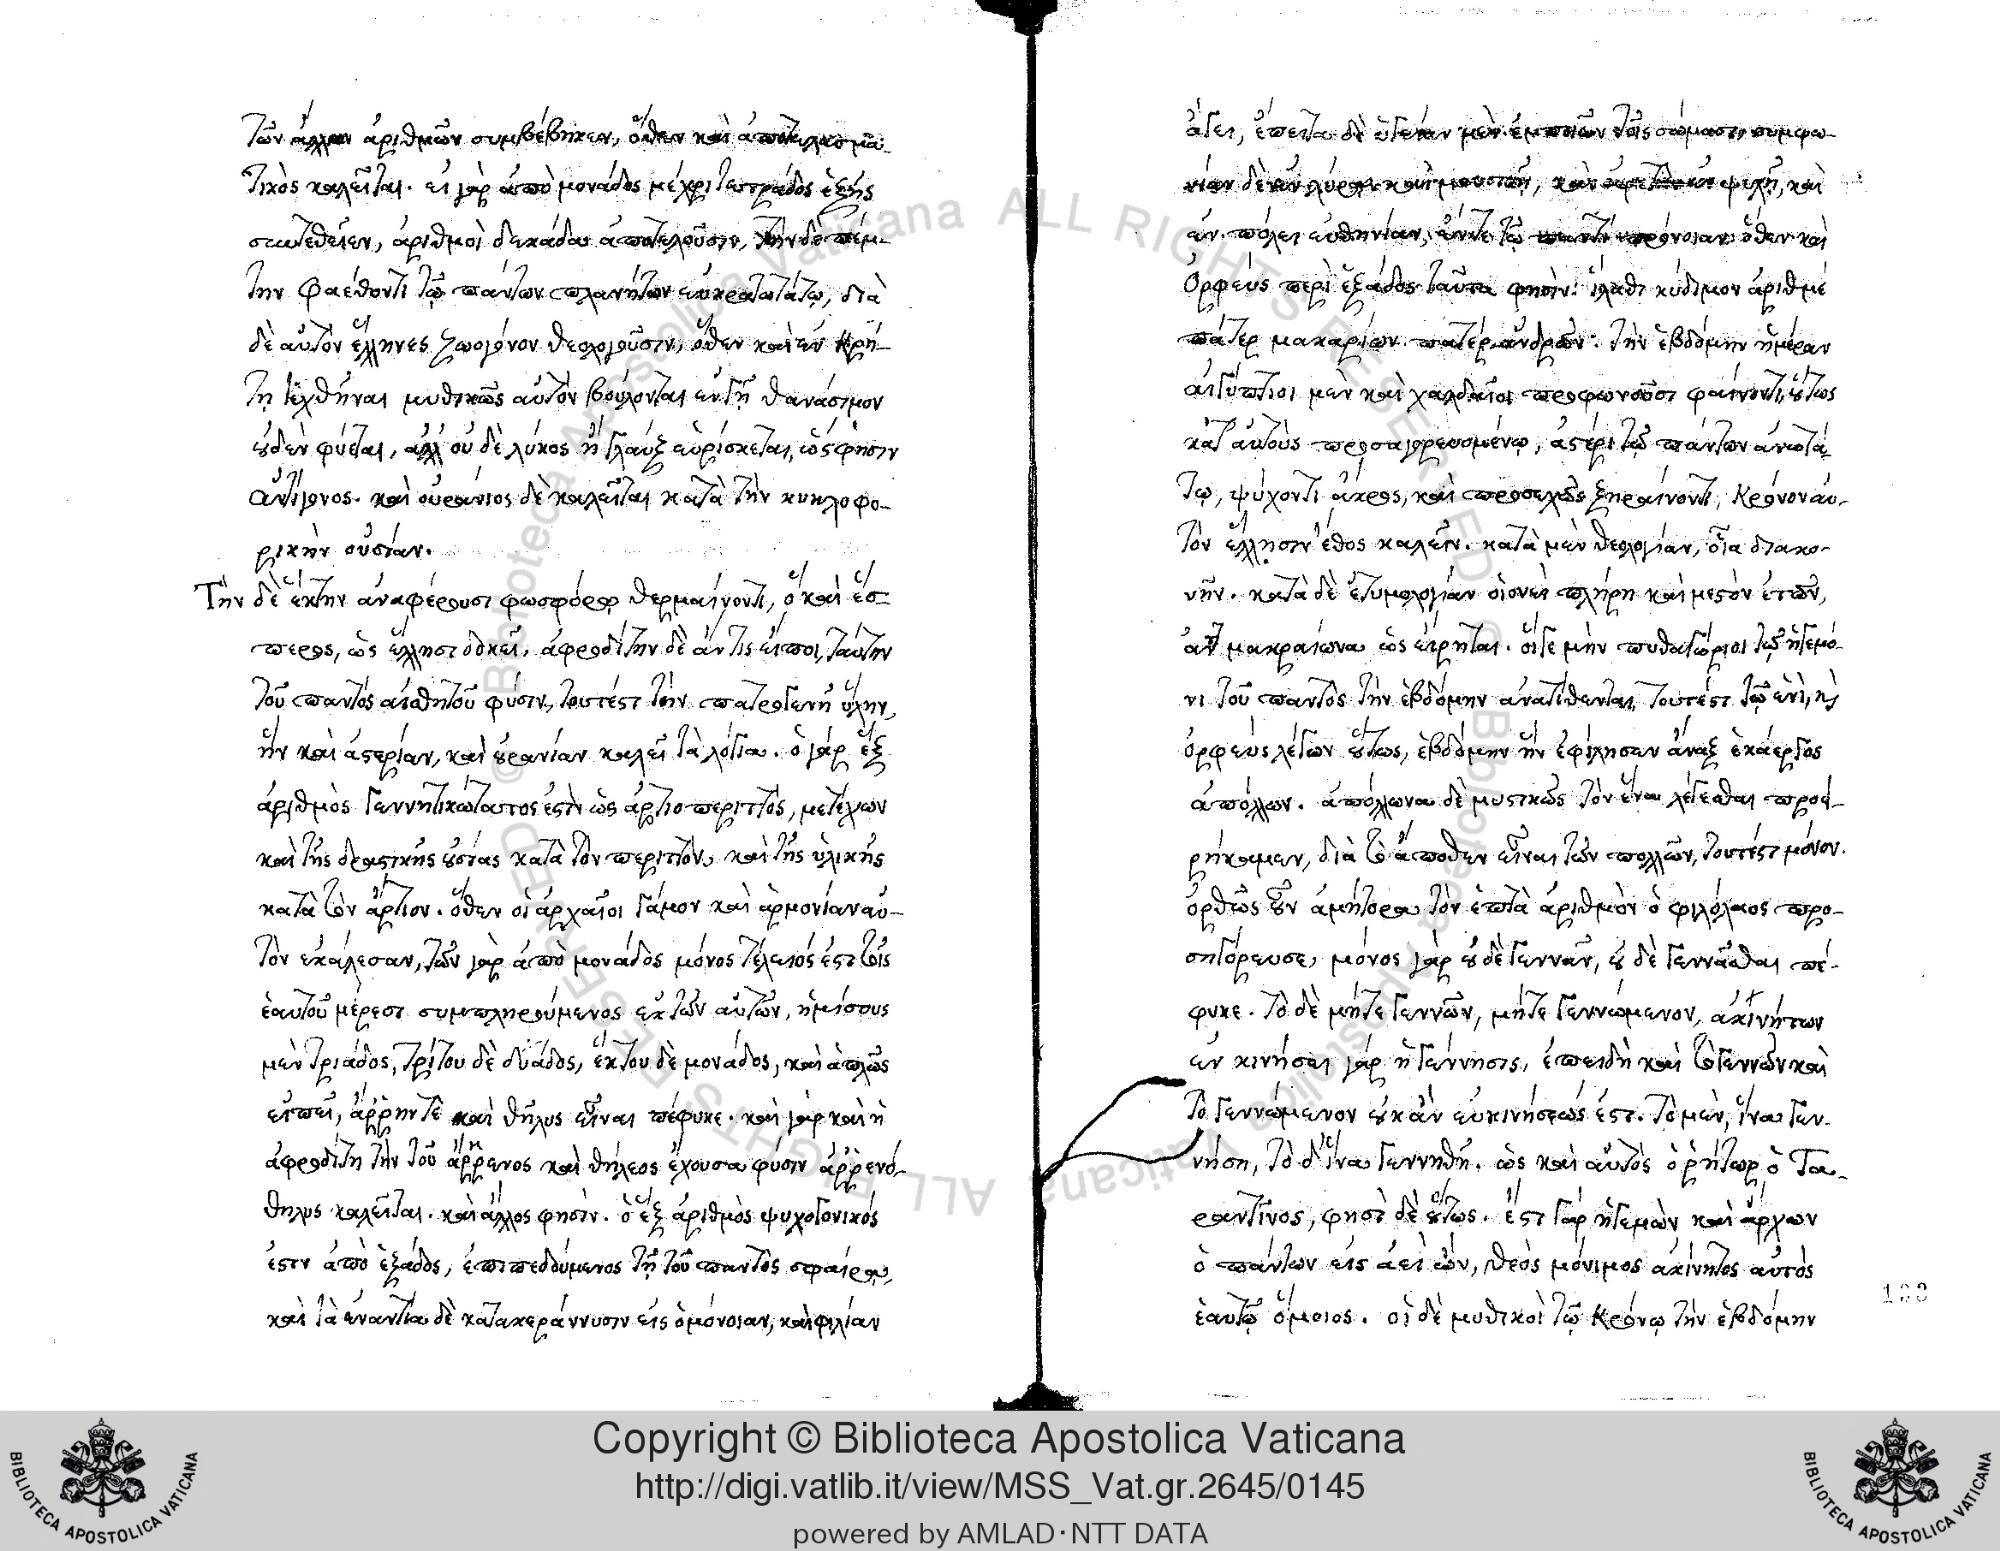 τῶν ἄλλων ἀριθμῶν συμβέβηκεν, ὅθεν καὶ ἀποτελεσμα-
τικὸς καλεῖται. εἰ γὰρ ἀπὸ μονάδος μέχρι τετράδος ἑξῆς
συντεθεῖεν, ἀριθμοὶ δεκάδα ἀποτελοῦσιν, τὴν δὲ πέμ-
την φαέθοντι τῷ πάντων πλανήτων εὐκρατωτάτῳ, δία
δὲ αὐτὸν ἕλληνες ζωογόνον θεολογοῦσιν, ὅθεν καὶ ἐν Κρή-
τῃ τεχθῆναι μυθικῶς αὐτὸν βούλονται ἐν ᾗ θανάσιμον
οὐδὲν φύεται, ἀλλ' οὐδὲ λύκος ἢ γλαὺξ εὑρίσκεται, ὥς φησιν
ἀντίγονος. καὶ οὐράνιος δὲ καλεῖται κατὰ τὴν κυκλοφο-
ρικὴν οὐσίαν.
Τὴν δὲ ἕκτην ἀναφέρουσι φωσφόρῳ θερμαίνοντι, ὃ καὶ ἕσ-
περος, ὡς ἕλλησι δοκεῖ, ἀφροδίτην δὲ ἄν τις εἴποι, ταύτην
τοῦ παντὸς αἰσθητοῦ φύσιν, τουτέστι τὴν πατρογενῆ ὕλην,
ἣν καὶ ἀστερίαν, καὶ οὐρανίαν καλεῖ τὰ λόγια. ὁ γὰρ ἓξ
ἀριθμὸς γεννητικώτατος ἐστὶν ὡς ἀρτιοπεριττὸς, μετέχων
καὶ τῆς δραστικῆς οὐσίας κατὰ τὸν περιττὸν, καὶ τῆς ὑλικῆς
κατὰ τὸν ἄρτιον. ὅθεν οἱ ἀρχαῖοι γάμον καὶ ἁρμονίαν αὐ-
τὸν ἐκάλεσαν, τῶν γὰρ ἀπὸ μονάδος μόνος τέλειός ἐστι τοῖς
ἑαυτοῦ μέρεσι συμπληρούμενος ἐκ τῶν αὐτῶν, ἡμίσους
μὲν τριάδος, τρίτου δὲ δυάδος, ἕκτου δὲ μονάδος, καὶ ἁπλῶς
εἰπεῖ, ἄρρην τὲ καὶ θῆλυς εἶναι πέφυκε. καὶ γὰρ καὶ ἡ
ἀφροδίτη τὴν τοῦ ἄρρενος καὶ θήλεος ἔχουσα φύσιν ἀρρενό-
θηλυς καλεῖται. καὶ ἄλλος φησὶν. ὁ ἓξ ἀριθμὸς ψυχογονικός
ἐστιν ἀπὸ ἑξάδος, ἐπιπεδούμενος τῇ τοῦ παντὸς σφαίρᾳ,
καὶ τὰ ἐναντία δὲ κατακεράννυσιν εἰς ὁμόνοιαν, καὶ φιλίαν
ἄγει, ἔπειτα δὲ ὑγείαν μὲν ἐμποιῶν τοῖς σώμασι, συμφω-
νίαν δὲ ἐν λύρᾳ καὶ μουσικῇ, καὶ ἀρετὴν ἐν ψυχῇ, καὶ
ἐν πόλει εὐθηνίαν, ἐν τε τῷ παντὶ πρόνοιαν ὅθεν καὶ
Ὀρφεὺς περὶ ἑξάδος ταῦτα φησίν. ἵλαθι κύδιμον ἀριθμέ
πάτερ μακαρίων πατέρ ἀνδρῶν. τὴν ἑβδόμην ἡμέραν
αἰγύπτιοι μὲν καὶ χαλδαῖοι προσφωνοῦσι φαίνοντι, οὕτως
κατ' αὐτοὺς προσαγορευομένῳ, ἀστέρι τῷ πάντων ἀνωτά-
τῳ, ψύχοντι ἄκρος, καὶ προσεχῶς ξηραίνοντι, Κρόνον αὐ-
τὸν ἕλλησιν ἔθος καλεῖν. κατὰ μὲν θεολογίαν, οἷα διακο-
νῆν. κατὰ δὲ ἐτυμολογίαν οἱονεὶ πλήρη καὶ μεστὸν ἐτῶν,
ἀντὶ μακραίωνα ὡς εἴρηται. οἵ γε μὴν πυθαγόριοι τῷ ἡγεμό-
νι τοῦ παντὸς τὴν ἑβδόμην ἀνατίθενται, τουτέστι τῷ ἑνὶ, καὶ
ὀρφεὺς λέγων οὕτως, ἑβδόμην ἣν ἐφίλησεν ἄναξ ἑκάεργος
ἀπόλλων. ἀπόλλωνα δὲ μυστικῶς τὸν ἕνα λέγεσθαι προει-
ρήκαμεν, διὰ τὸ ἄποθεν εἶναι τῶν πολλῶν, τουτέστι μόνον.
ὀρθῶς οὖν ἀμήτορα τὸν ἑπτὰ ἀριθμὸν ὁ φιλόλαος προ-
σηγόρευσε, μόνος γὰρ οὐδὲ γεννᾶν, οὐδὲ γεννᾶσθαι πέ-
φυκε. τὸ δὲ μήτε γεννῶν, μήτε γεννώμενον, ἀκίνητων
ἐν κινήσει γὰρ ἡ γέννησις, ἐπειδὴ καὶ τὸ γεννῶν καὶ
τὸ γεννώμενον οὐκ ἂν εὐκινήσεώς ἐστι. τὸ μὲν, ἵνα γεν-
νήσῃ, τὸ δ' ἵνα γεννηθῇ. ὡς καὶ αὐτὸς ὁ ῥήτωρ ὁ Τα-
ραντῖνος, φησὶ δὲ οὕτως. ἔστι γὰρ ἡγεμὼν καὶ ἄρχων
ὁ πάντων εἷς ἀεὶ ὢν, θεὸς μόνιμος ἀκίνητος αὐτὸς
ἑαυτῷ ὅμοιος. οἱ δὲ μυθικοὶ τῷ Κρόνῳ τὴν ἑβδόμην
Copyright © Biblioteca Apostolica Vaticana
http://digi.vatlib.it/view/MSS_Vat.gr.2645/0145
powered by AMLAD·NTT DATA
BIBLIOTECA APOSTOLICA VATICANA
BIBLIOTECA APOSTOLICA VATICANA